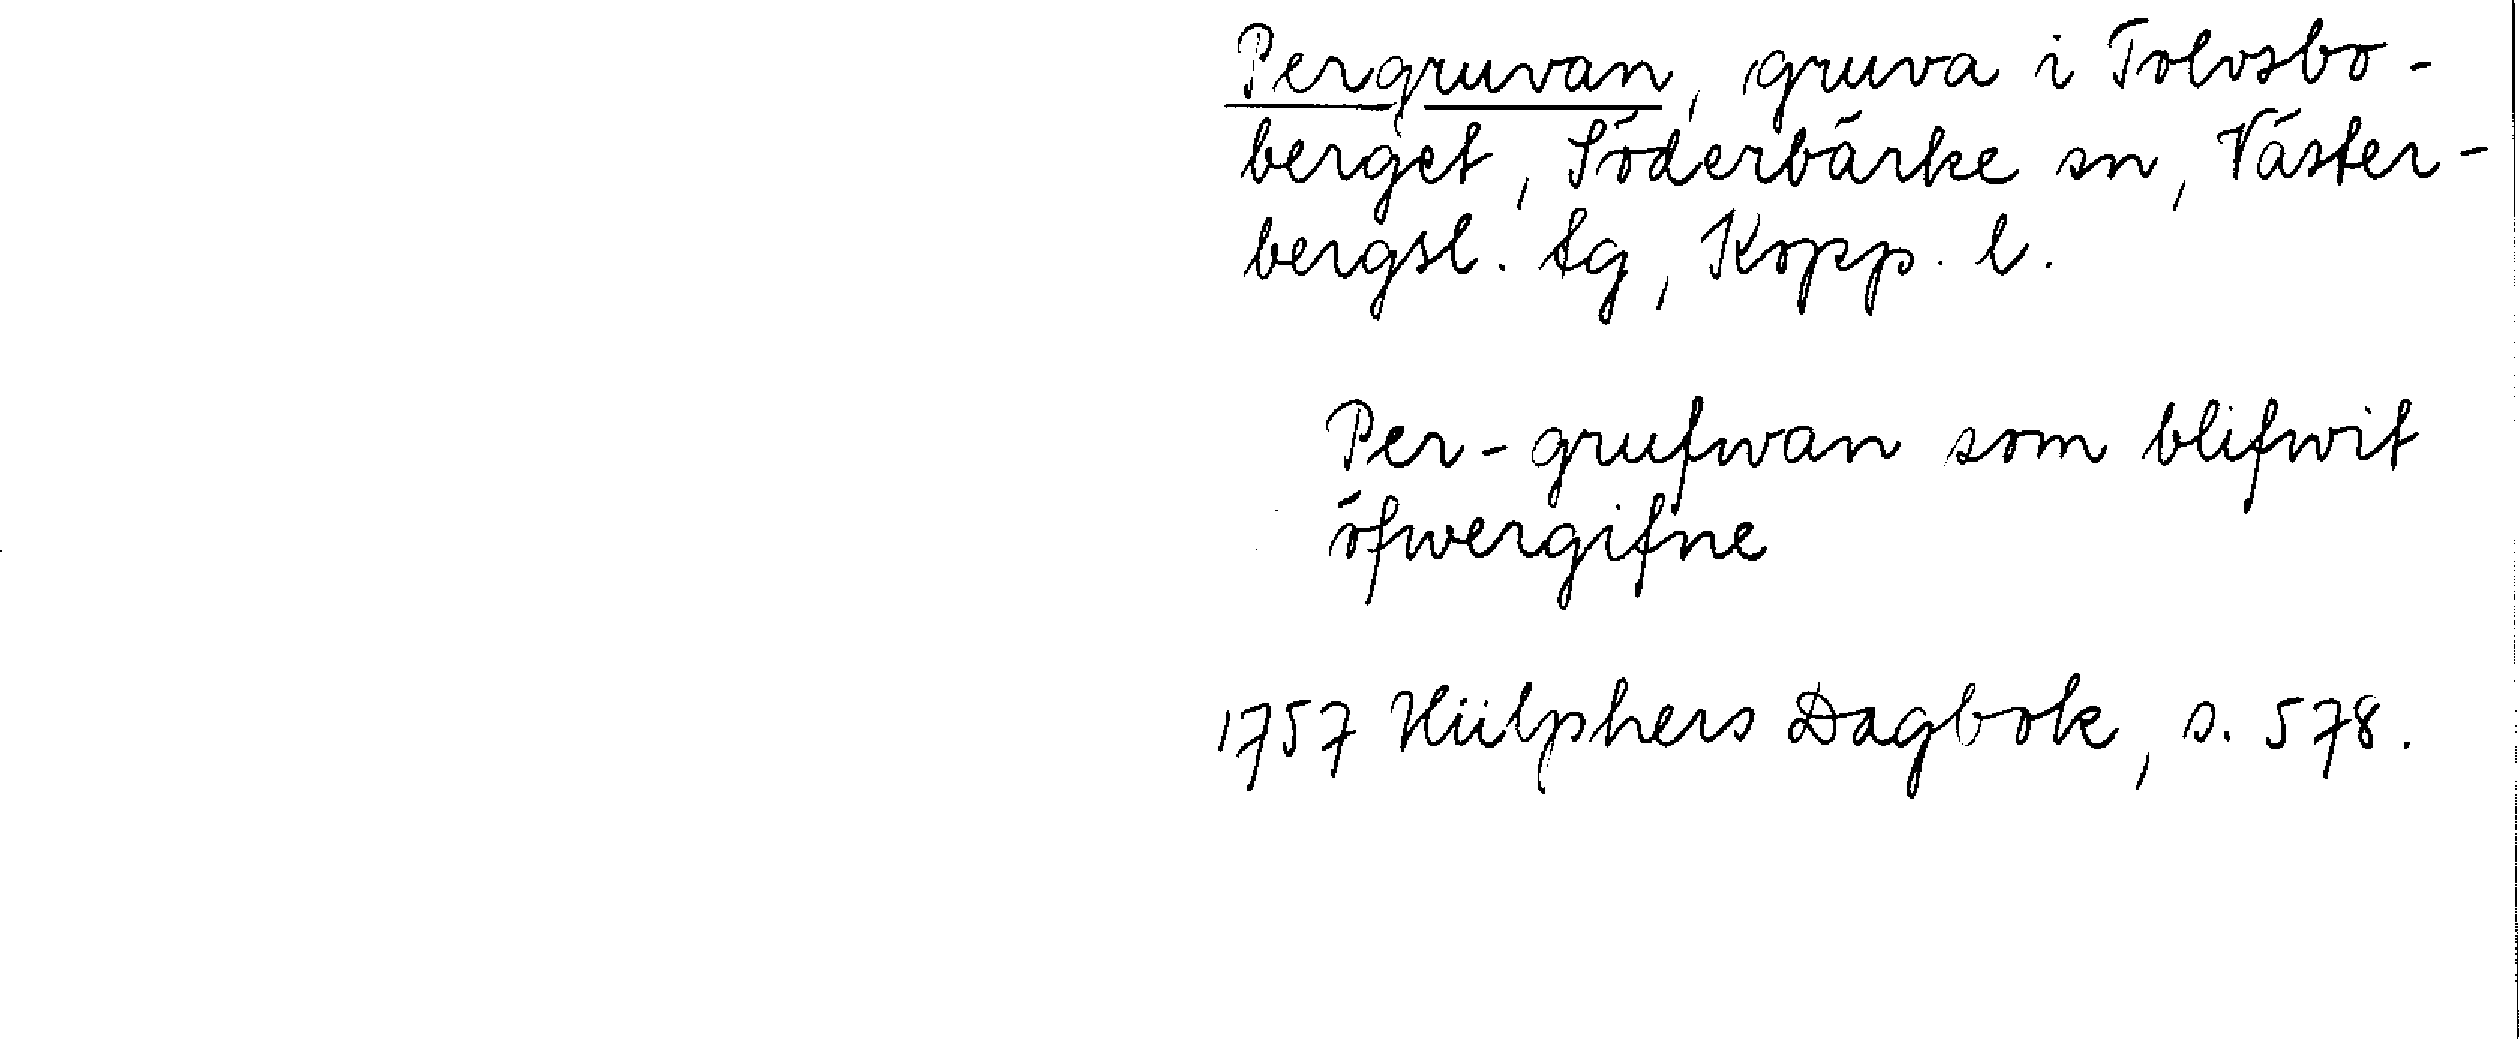 Pergruvan, gruva i Tolvsbo-
berget, Söderbärke sn, Väster-
bergsl. tg, Kopp. l.
Per-grufwan som blifwit
öfwergifne
1757 Hülphers Dagbok, s. 578.